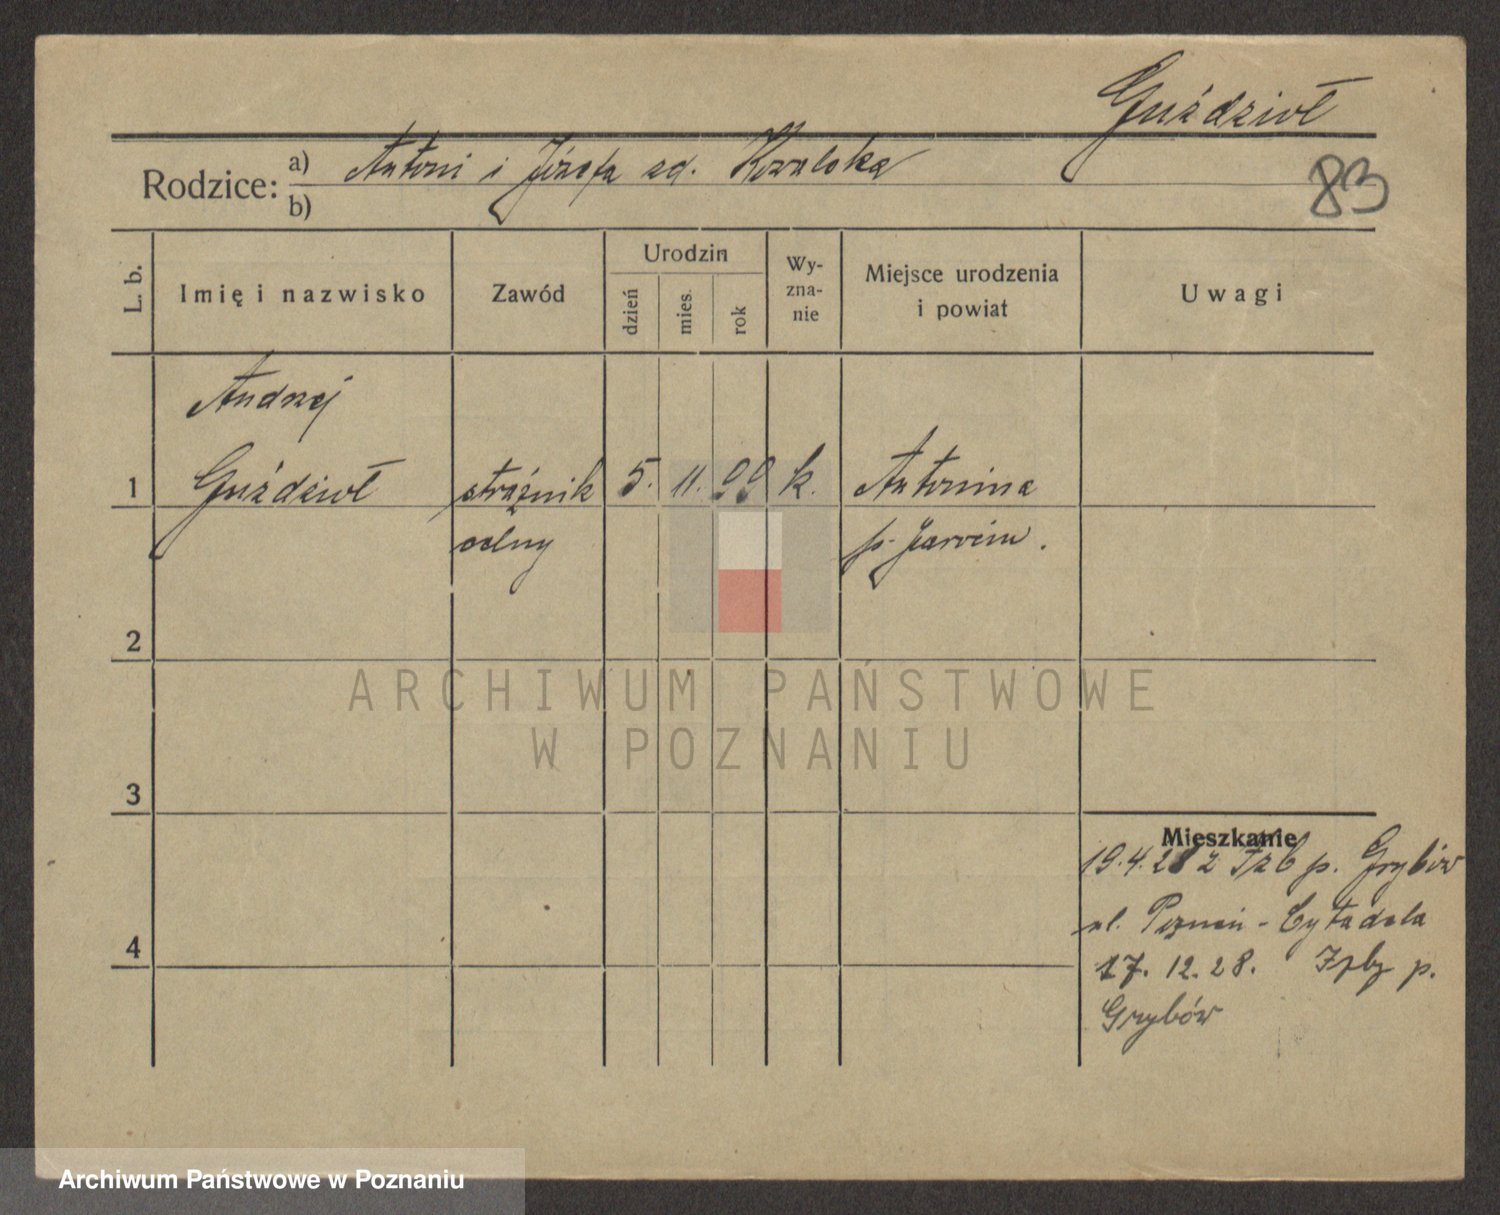 Guździoł
Rodzice: a) Antoni i Józefa zd. Kowalska
b)
83
L. b.
Imię i nazwisko
Zawód
Urodzin
dzień
mies.
rok
Wy-
zna-
nie
Miejsce urodzenia
i powiat
Uwagi
Andrzej
1 Guździoł strażnik 5. 11. 99 k. Antonina
celny p. Jarocin.
2
3
4
ARCHIWUM PAŃSTWOWE
W POZNANIU
Mieszkanie
19.4.28 z p. Grybów
ul. Poznań - Cytadela
17. 12. 28. p.
Grybów
Archiwum Państwowe w Poznaniu